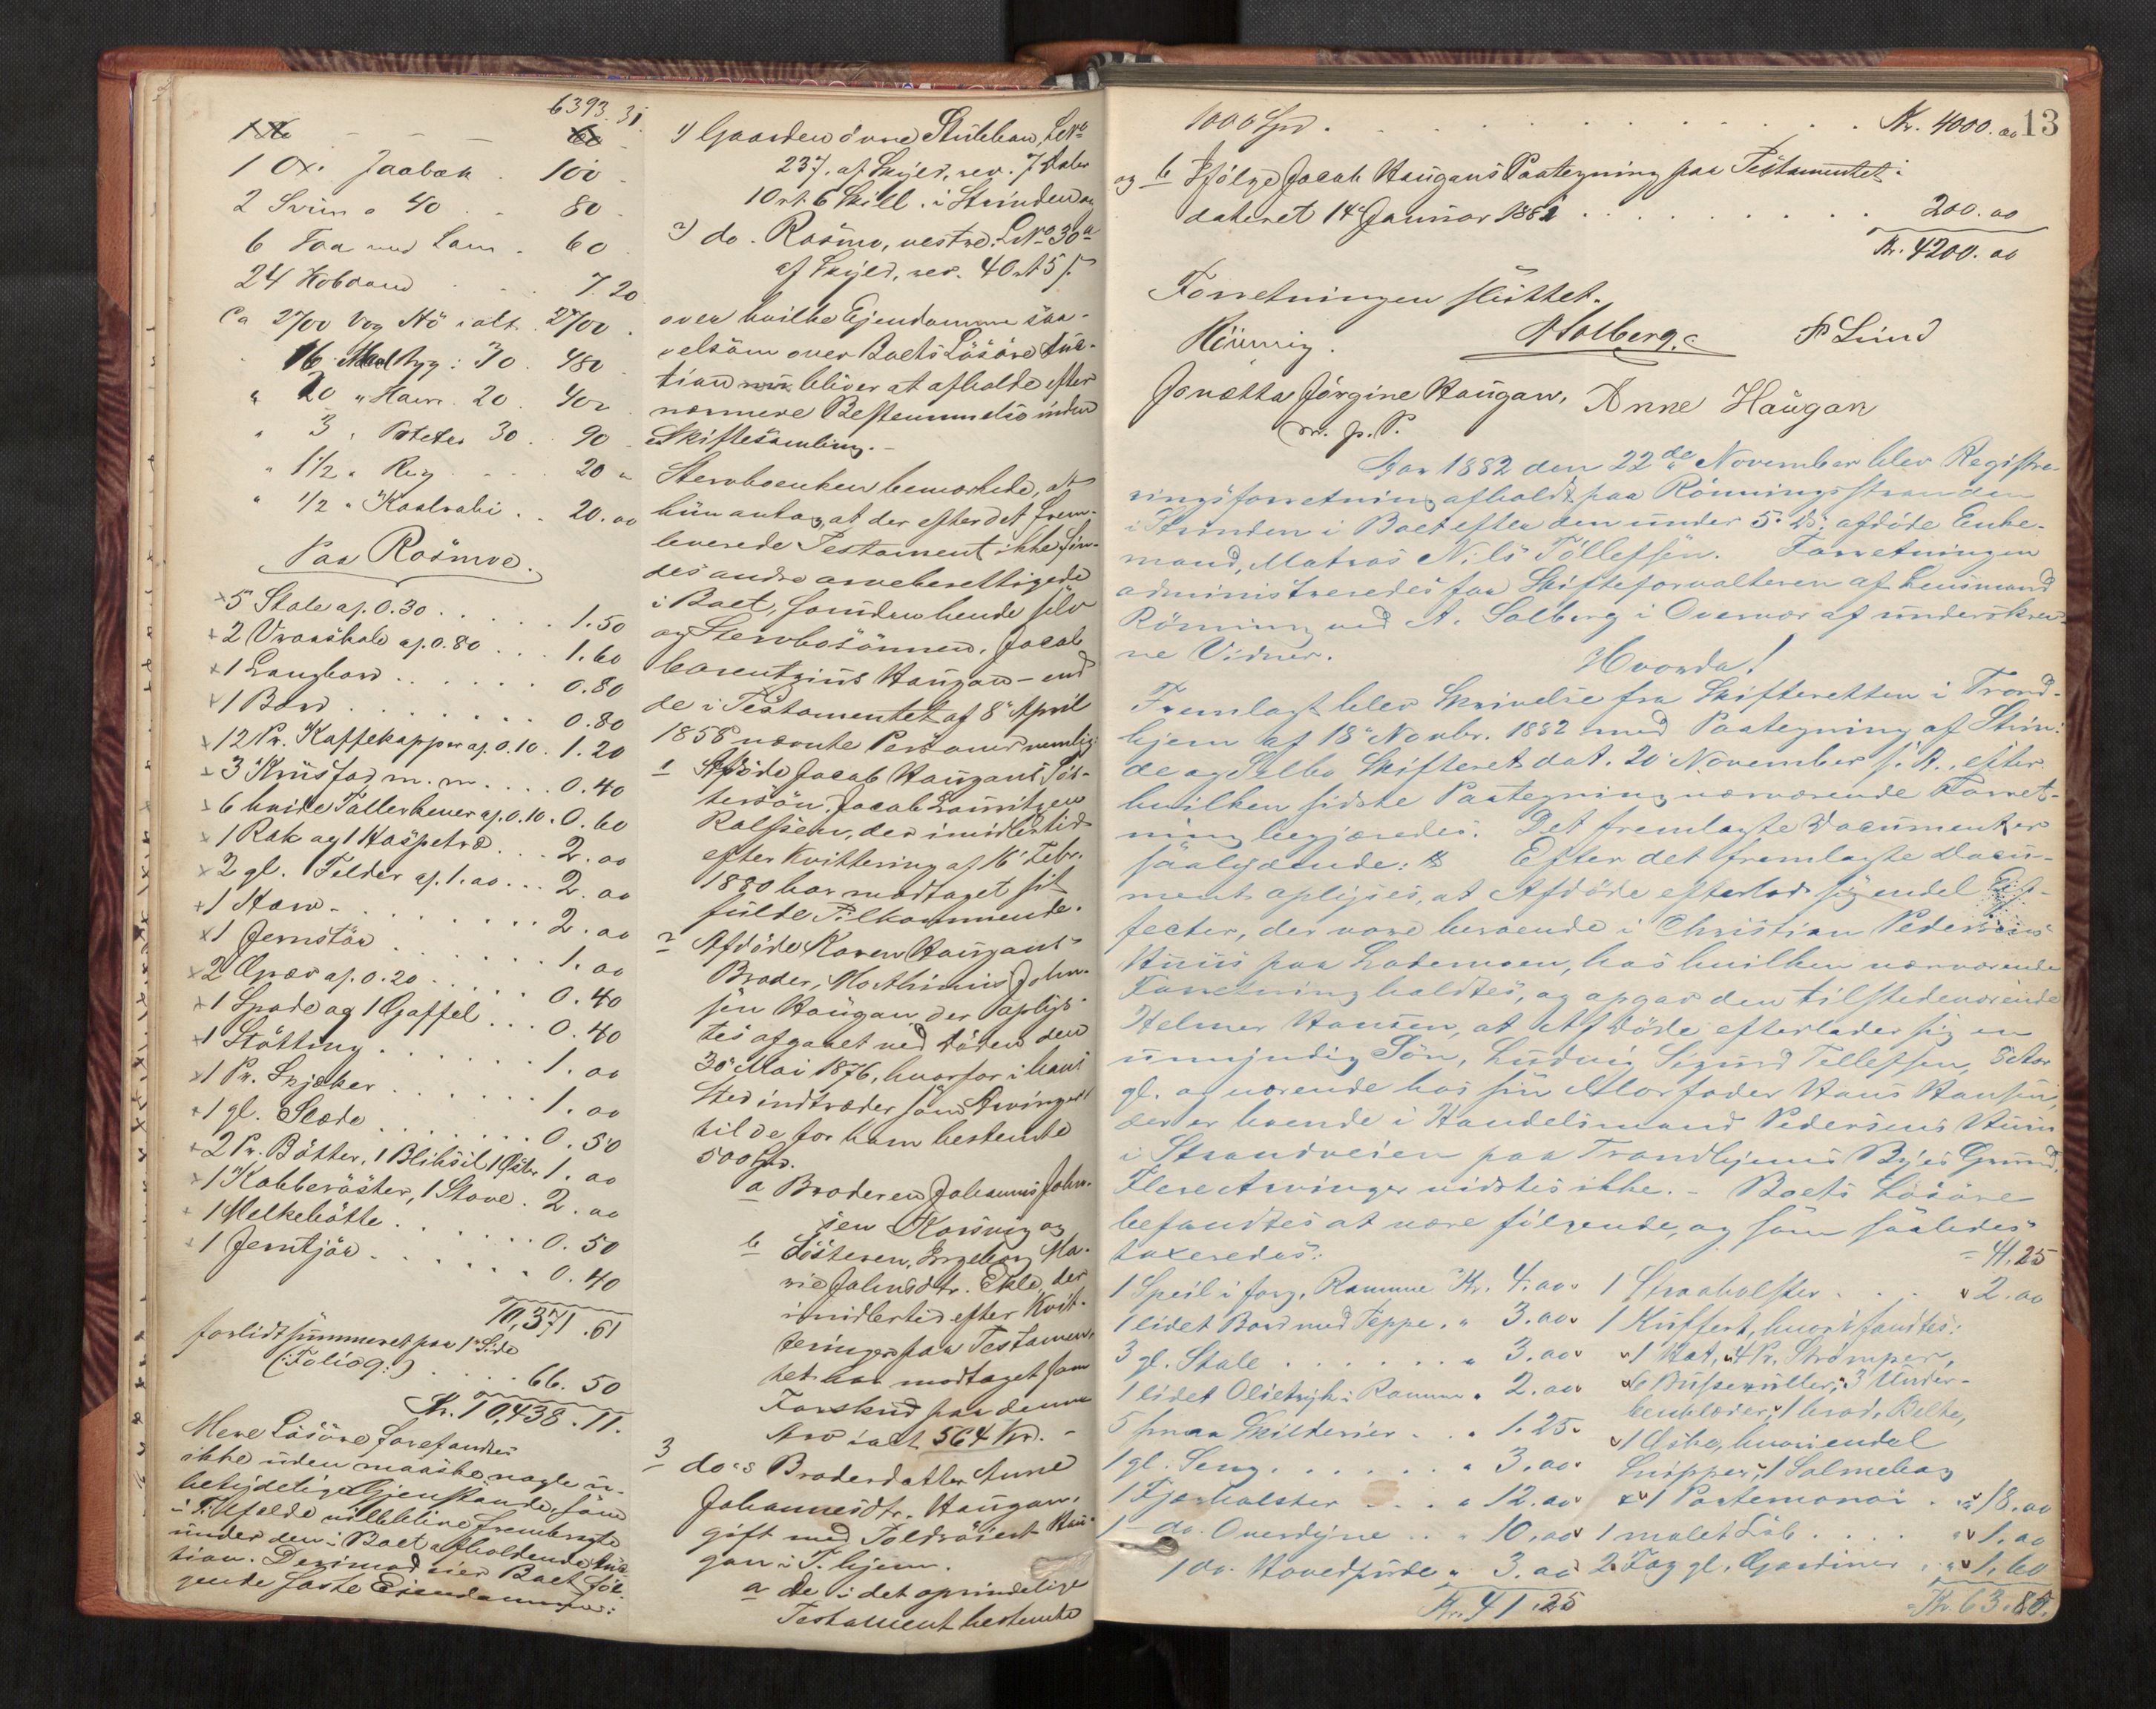 6393.31
1 Ox. Jaabak . 100
2 Sviin a 40 . . 80
6 Faa med Lam . 60
24 Hobaand . . . 7.20
Ca 2700 Vog Hö ialt . 2700
16 Maal Byg : 30 . 480
" 20 " Havre . 20 . 400
" 3 " Poteter 30 . 90
" 1 1/2 " Rug . . . 20 "
" 1/2 " Kaalrabi . . 20.00
Paa Rosmoe.
5 Stole ap. 0.30 . . . . . 1.50
2 Vraaskabe ap. 0.80 . . . 1.60
1 Langbord . . . . . . 0.80
1 Bord . . . . . . . 0.80
12 Pr. Kaffekopper ap. 0.10 . 1.20
3 Kruus fad m. m. . . . . 0.40
6 hvide Tallerkener ap. 0.10 . 0.60
1 Rok og 1 Haspetræ . . . 2.00
2 gl. Felder ap. 1.00 . . . 2.00
1 Harv . . . . . . . 2.00
1 Jernstör . . . . . . 1.00
2 Grev ap. 0.20 . . . . . 0.40
1 Spade og 1 Gaffel . . . 0.40
1 Stötting . . . . . . 1.00
1 Pr. Skjeker . . . . . . 1.00
1 gl. Slæde . . . . . . 0.50
2 Pr. Bötter, 1 Bliksil 1 Öster 1.00
1 Kobberöster, 1 Stove . 2.00
1 Melkebötte . . . . . . 0.50
1 Jerntjör . . . . . . 0.40
10,371.61
forlidt summeret paa 1ste Side
(: Folio 9 :) . . . . 66.50
Kr. 10,438.11.
Mere Lösöre forefandtes
ikke uden maaske nogle u-
betydelige Gjenstande, som
i Tilfelde vil blive frembragte
under den i Boet afholdende Auc-
tion. Derimod eier Boet föl-
gende faste Eiendomme:
1) Gaarden övre Stubban, L.No
237, af Skyld, rev. 7 Daler
10 rt. 6 Skill. i Strinden og
2) do. Rosmo, vestre. L.No 30a
af Skyld, rev. 40 rt 5 s.
over hvilke Ejendomme saa-
velsom over Boets Lösöre Auc-
tion bliver at afholde efter
nærmere Bestemmelse inden
Skiftesamling.-
Stervboenken bemerkede, at
hun antog, at der efter det frem-
leverede Testament ikke fin-
des andre arveberettigede
i Boet, foruden hende selv
og Stervbosönnen, Jacob
Laurentzius Haugan - end
de i Testamentet af 8de April
1858 nævnte Personer nemlig:
1 Afdöde Jacob Haugans Sös-
tersön, Jacob Lauritzen
Rolfsen, der imidlertid
efter Kvittering af 16 Febr.
1880 har modtaget sit
fulde Tilkommende.
2 Afdöde Karen Haugans
Broder, Mathinius John-
sen Haugan der oplys-
tes afgaaet ved Döden den
30te Mai 1876, hvorfor i hans
Sted indtræder som Arvinger
til de for ham bestemte
500 Spd.
a Broderen Johannis John-
sen Korsvig og
b Sösteren, Ingeborg Ma-
rie Johnsdtr. Ekle, der
imidlertid efter Kvit-
teringer paa Testamen-
tet har modtaget som
Forskud paa denne
Arv ialt 564 Kr. -
3 do's Broderdatter Anne
Johannesdtr. Haugan,
gift med Toldröiert Hau-
gan i T.hjem.
a de i det oprindelige
Testament bestemte
13
1000 Spd. . . . . . . . . . . Kr. 4000.00
og b Ifölge Jacob Haugans Paategning paa Testamentet
dateret 14de Januar 1882 . . . . . . . . 200.00
Kr. 4200.00
Forretningen sluttet.
Rönning. A Solberg. P Lund
Jonetta Jörgine Haugan, Anne Haugan
m. p. P.
Aar 1882 den 22de November blev Registre-
ringsforretning afholdt paa Rönningsstranden
i Strinden i Boet efter den under 5. ds. afdöde Enke-
mand, Matros Nils Tollefsen. Forretningen
administreredes for Skifteforvalteren af Lensmand
Rönning ved A. Solberg i Overvær af underskrev-
ne Vidner.
Hvorda!
Fremlagt blev Skrivelse fra Skifteretten i Trond-
hjem af 18de Novbr. 1882 med Paategning af Strin-
de og Selbo Skifteret dat. 20 November s. A., efter
hvilken sidste Paategning nærværende Forret-
ning begjæredes. Det fremlagte Document er
saalydende: Efter det fremlagte Docu-
ment oplyses, at Afdöde efterlod sig endel Ef-
fecter, der vare beroende i Christian Pedersens
Huus paa Lademoen, hos hvilken nærværende
Forretning holdtes, og opgav den tilstedeværende
Helmer Hansen, at Afdöde efterlader sig en
umyndig Sön, Ludvig Sigurd Tollefsen, 8 Aar
gl. og værende hos sin Morfader Hans Hansen,
der er boende i Handelsmand Pedersens Huus
i Strandveien paa Trondhjems Byes Grund.
Flere Arvinger vidstes ikke. - Boets Lösöre
befandtes at være fölgende, og som saaledes
taxeredes:
1 Speil i forg. Ramme Kr. 4.00
1 lidet Bord med Teppe . " 3.00
3 gl. Stole . . . . . . " 3.00
1 lidet Olietryk i Ramme " 2.00
5 smaa Skilderier . . " 1.25
1 gl. Seng . . . . . . " 3.00
1 Fjærbolster . . . " 12.00
1 do. Overdyne . . " 10.00
1 do. Hovedpude " 3.00
Kr. 41.25
= 41.25
1 Straabolster . . . " 2.00
1 Kuffert, hvori fandtes:
1 Hat, 4 Pr. Strömper,
6 Busseruller, 3 Under-
benklæder, 1 brod. Belte,
1 Æske, hvori endel
Snipper, 1 Salmebog
1 Portemonai . " 18.00
1 malet Lab . . . . " 1.00
2 Fag gl. Gardiner . " 1.60
Kr. 63.85.